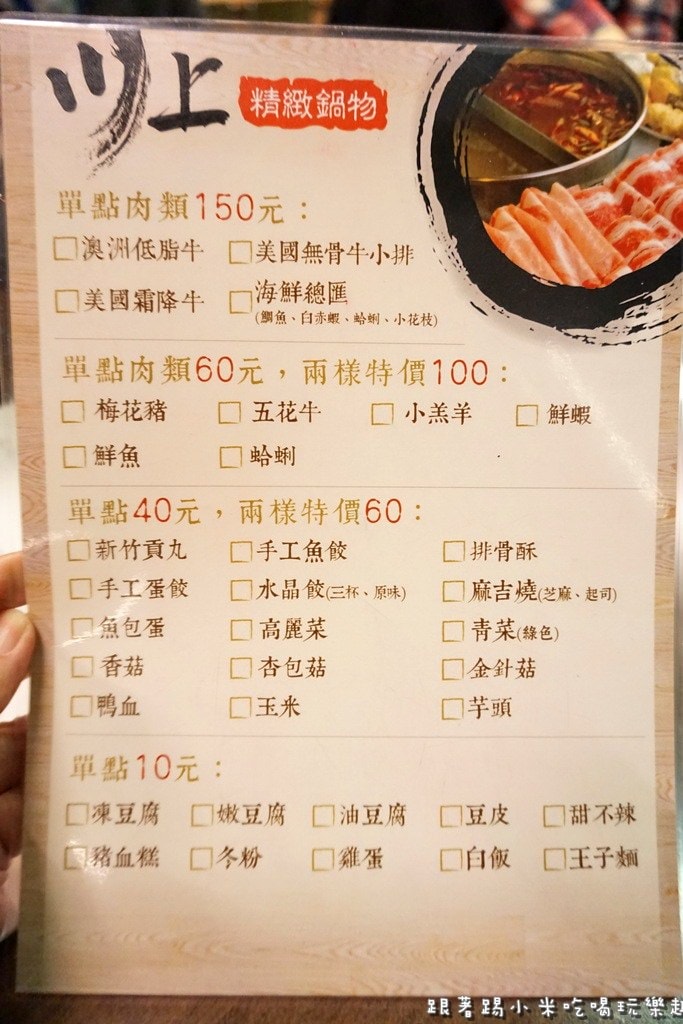 川上 精緻鍋物
單點肉類150元：
□澳洲低脂牛 □美國無骨牛小排
□美國霜降牛 □海鮮總匯
(鯛魚、白赤蝦、蛤蜊、小花枝)
單點肉類60元，兩樣特價100：
□梅花豬 □五花牛 □小羔羊 □鮮蝦
□鮮魚 □蛤蜊
單點40元，兩樣特價60：
□新竹貢丸 □手工魚餃 □排骨酥
□手工蛋餃 □水晶餃(三杯、原味) □麻吉燒(芝麻、起司)
□魚包蛋 □高麗菜 □青菜(綠色)
□香菇 □杏包菇 □金針菇
□鴨血 □玉米 □芋頭
單點10元：
□凍豆腐 □嫩豆腐 □油豆腐 □豆皮 □甜不辣
□豬血糕 □冬粉 □雞蛋 □白飯 □王子麵
跟著踢小米吃喝玩樂趣